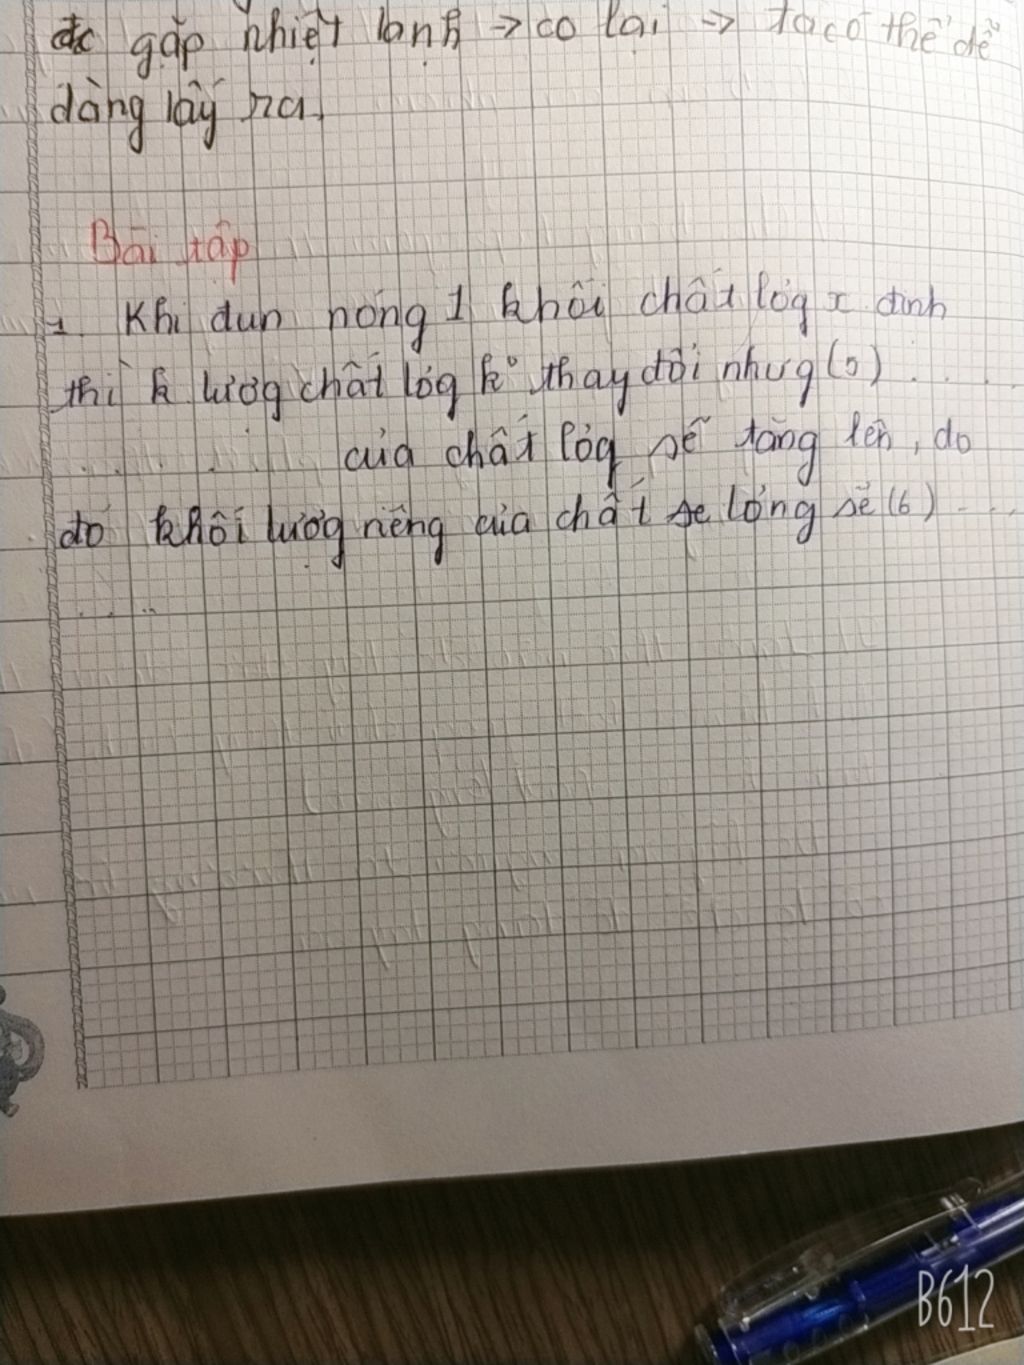 đc gặp nhiệt lạnh → co lại → ta có thể dễ
dàng lấy ra.
Bài tập
1. Khi đun nóng 1 khối chất lỏg x định
thì k lượg chất lỏg kº thay đổi nhưg (5) . . . .
. . . . . . của chất lỏg sẽ tăng lên, do
đó khối lượg riêng của chất se lỏng sẽ (6) . . .
. . . .
B612